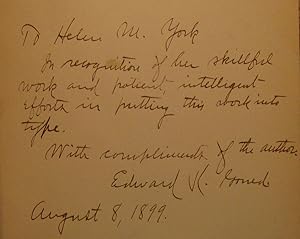 To Helen M. York
In recognition of her skillful
work and patient, intelligent
efforts in putting this work into
type.
With compliments of the author
Edward
August 8, 1899.